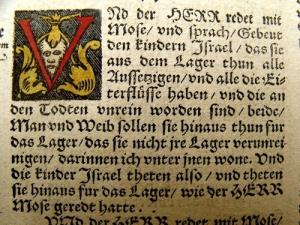 VNd der HERR redet mit
Mose/ vnd sprach/ Gebeut
den kindern Israel/ das sie
aus dem Lager thun alle
Aussetzigen/ vnd alle die Ei-
terflüsse haben/ vnd die an
den Todten vnrein worden sind/ beide/
Man vnd Weib sollen sie hinaus thun fur
das Lager/ das sie nicht jre Lager verunrei-
nigen/ darinnen ich vnter jnen wone. Vnd
die kinder Israel theten also/ vnd theten
sie hinaus fur das Lager/ wie der HERR
Mose geredt hatte.
VNd der HERR redet mit Mose/